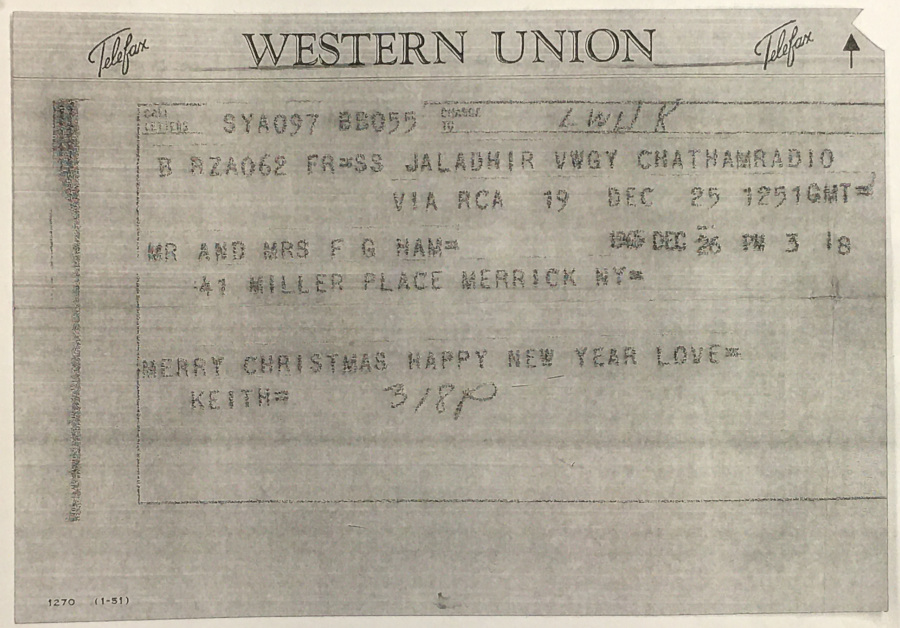 Telefax WESTERN UNION Telefax
CALL LETTERS SYA097 BB055 CHARGE TO
B RZA062 FR=SS JALADHIR VWGY CHATHAMRADIO
VIA RCA 19 DEC 25 1251GMT=
MR AND MRS F G HAM= 1965 DEC 26 PM 3 18
41 MILLER PLACE MERRICK NY=
MERRY CHRISTMAS HAPPY NEW YEAR LOVE=
KEITH= 318P
1270 (1-51)